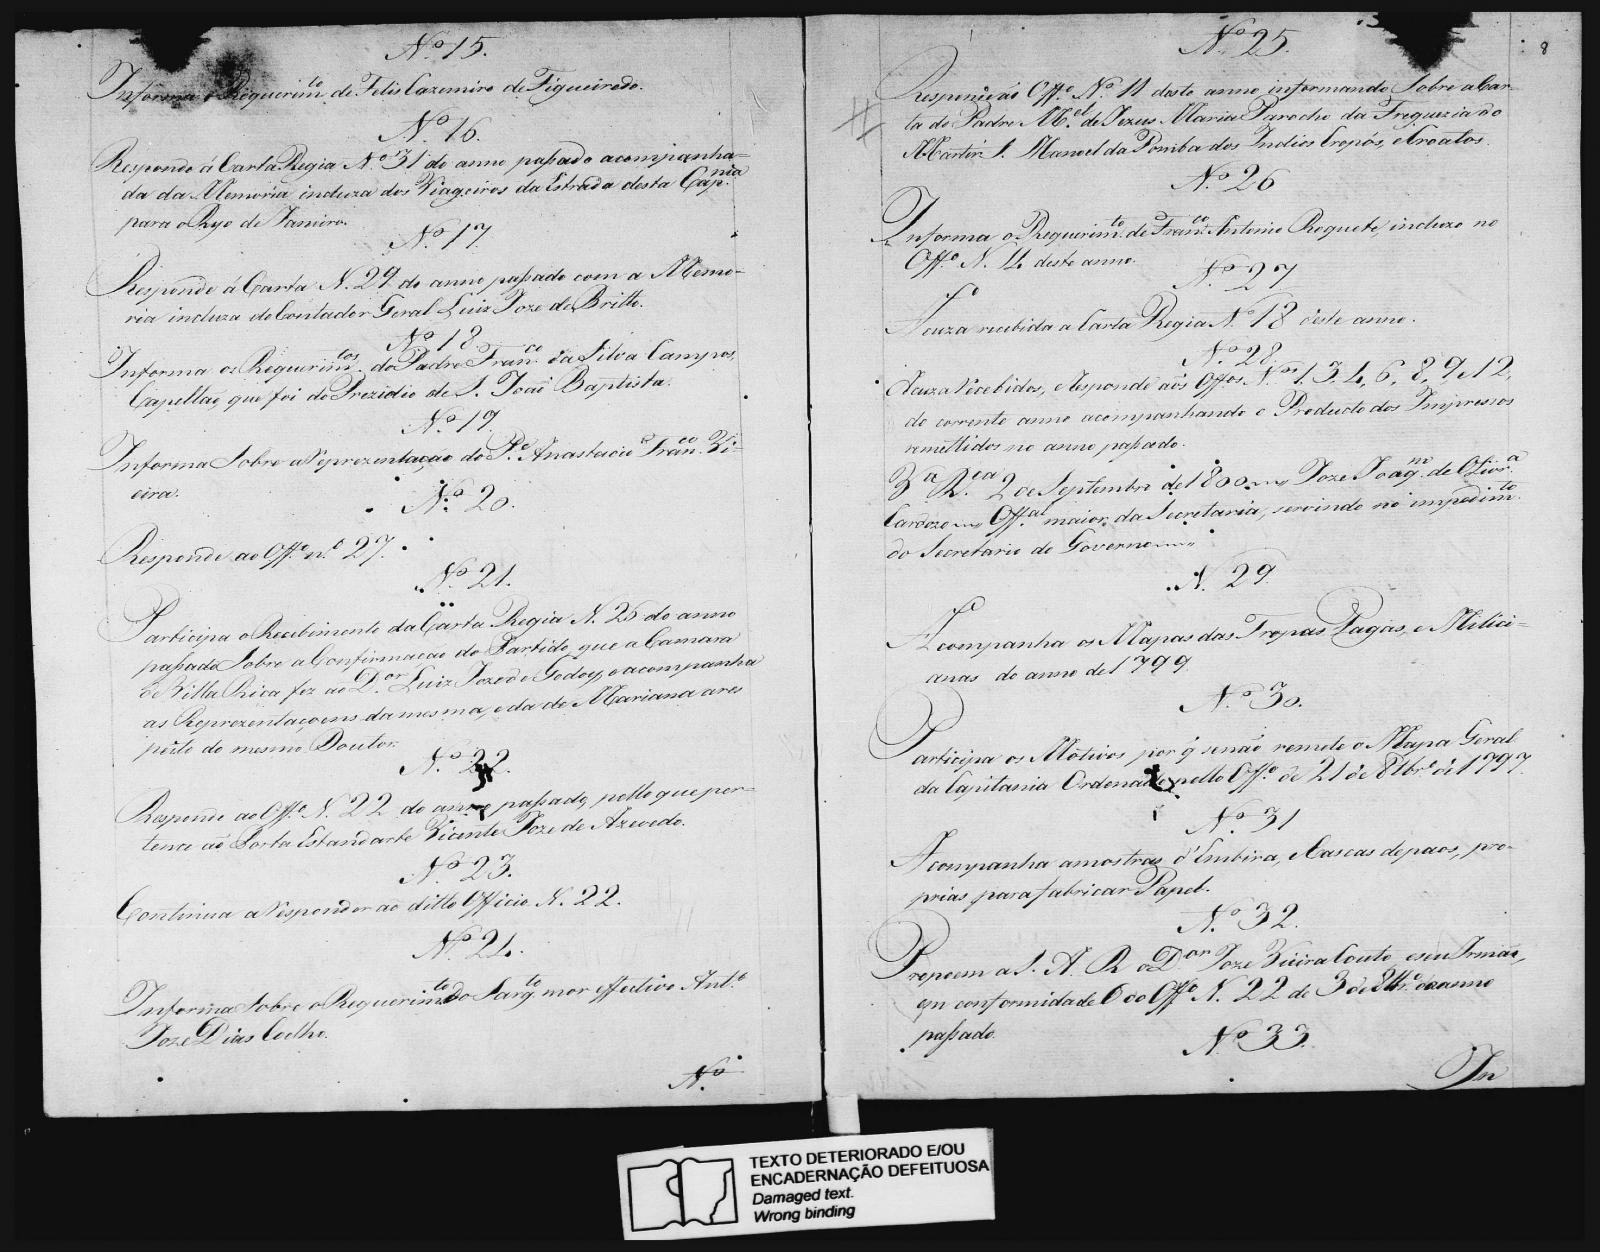 Nº 15.
Informa o Requerimto de Felis Cazemiro de Figueiredo.
Nº 16.
Responde á Carta Regia Nº 31 do anno passado acompanha=
da da Memoria incluza dos Viageiros da Estrada desta Capnia
para o Ryo de Janeiro.
Nº 17.
Responde á Carta N. 29 do anno passado com a Memo-
ria incluza do Contador Geral Luiz Joze de Britto.
Nº 18.
Informa os Requerimtos do Padre Franco da Silva Campos,
Capellaõ, que foi do Prezidio de S. Joaõ Baptista.
Nº 19.
Informa Sobre a Reprezentaçaõ do Pe Anastacio Franco Vi-
eira.
Nº 20.
Responde ao Offo nº 27.
Nº 21.
Participa o Recibimento da Carta Regia N. 25 do anno
passado Sobre a Confirmacaõ do Partido, que a Camara
de Villa Rica fez ao Dor Luiz Joze de Godoy, e acompanha
as Reprezentaçoens da mesma, e da de Mariana a res
peito do mesmo Doutor.
Nº 22.
Responde ao Offo N. 22 do anno passado, pello que per-
tence aõ Porta Estandarte Vicente Joze de Azevedo.
Nº 23.
Continua a Responder ao ditto Officio N. 22.
Nº 24.
Informa Sobre o Requerimto do Sargto mor effectivo Anto
Joze Dias Coelho.
Nº
8
Nº 25.
Responde ao Offo Nº 11 deste anno informando Sobre a Car-
ta do Padre Mel de Jezus Maria Parocho da Freguezia do
Martir S. Manoel da Pomba dos Indios Cropós, e Croatos.
Nº 26
Informa o Requerimto de Franco Antonio Roquete, incluzo no
Offo N. 14 deste anno.
Nº 27
Acuza recibida a Carta Regia Nº 18 deste anno.
Nº 28.
Acuza Recebidos, e Responde aos Offos Nos 1. 3. 4, 6, 8, 9, e 12,
do corrente anno acompanhando o Producto dos Impressos
remettidos no anno passado.
Va Rca 2 de Septembro de 1800 Joze Joaqm de Olivra
Cardozo Offal maior da Secretaria, servindo no impedimto
do Secretario do Governo
N. 29
Acompanha os Mapas das Tropas Pagas, e Milici=
anas do anno de 1799
Nº 30.
Participa os Motivos por q̃ senaõ remete o Mapa Geral
da Capitania Ordenado pello Offo de 21 de 8bro de 1797.
Nº 31
Acompanha amostras d'Embira, e Cascas de paos, pro-
prias para fabricar Papel.
Nº 32.
Propoem a S. A. R. o Dor Joze Vieira Couto e seu Irmaõ,
em conformidade do Offo N. 22 de 3 de 8bro do anno
passado.
Nº 33.
In
TEXTO DETERIORADO E/OU
ENCADERNAÇÃO DEFEITUOSA
Damaged text.
Wrong binding